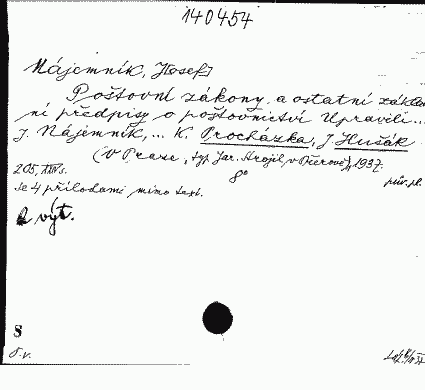 140454
Nájemník, Josef
Poštovní zákony a ostatní základ-
ní předpisy o poštovnictví Upravili ...
J. Nájemník, ... K. Procházka, J. Hušák.
(V Praze, typ. Jar. Strojil, v Přerově), 1937.
205, s. 8°
Se 4 přílohami mimo text. pův. pl.
2 výt.
S